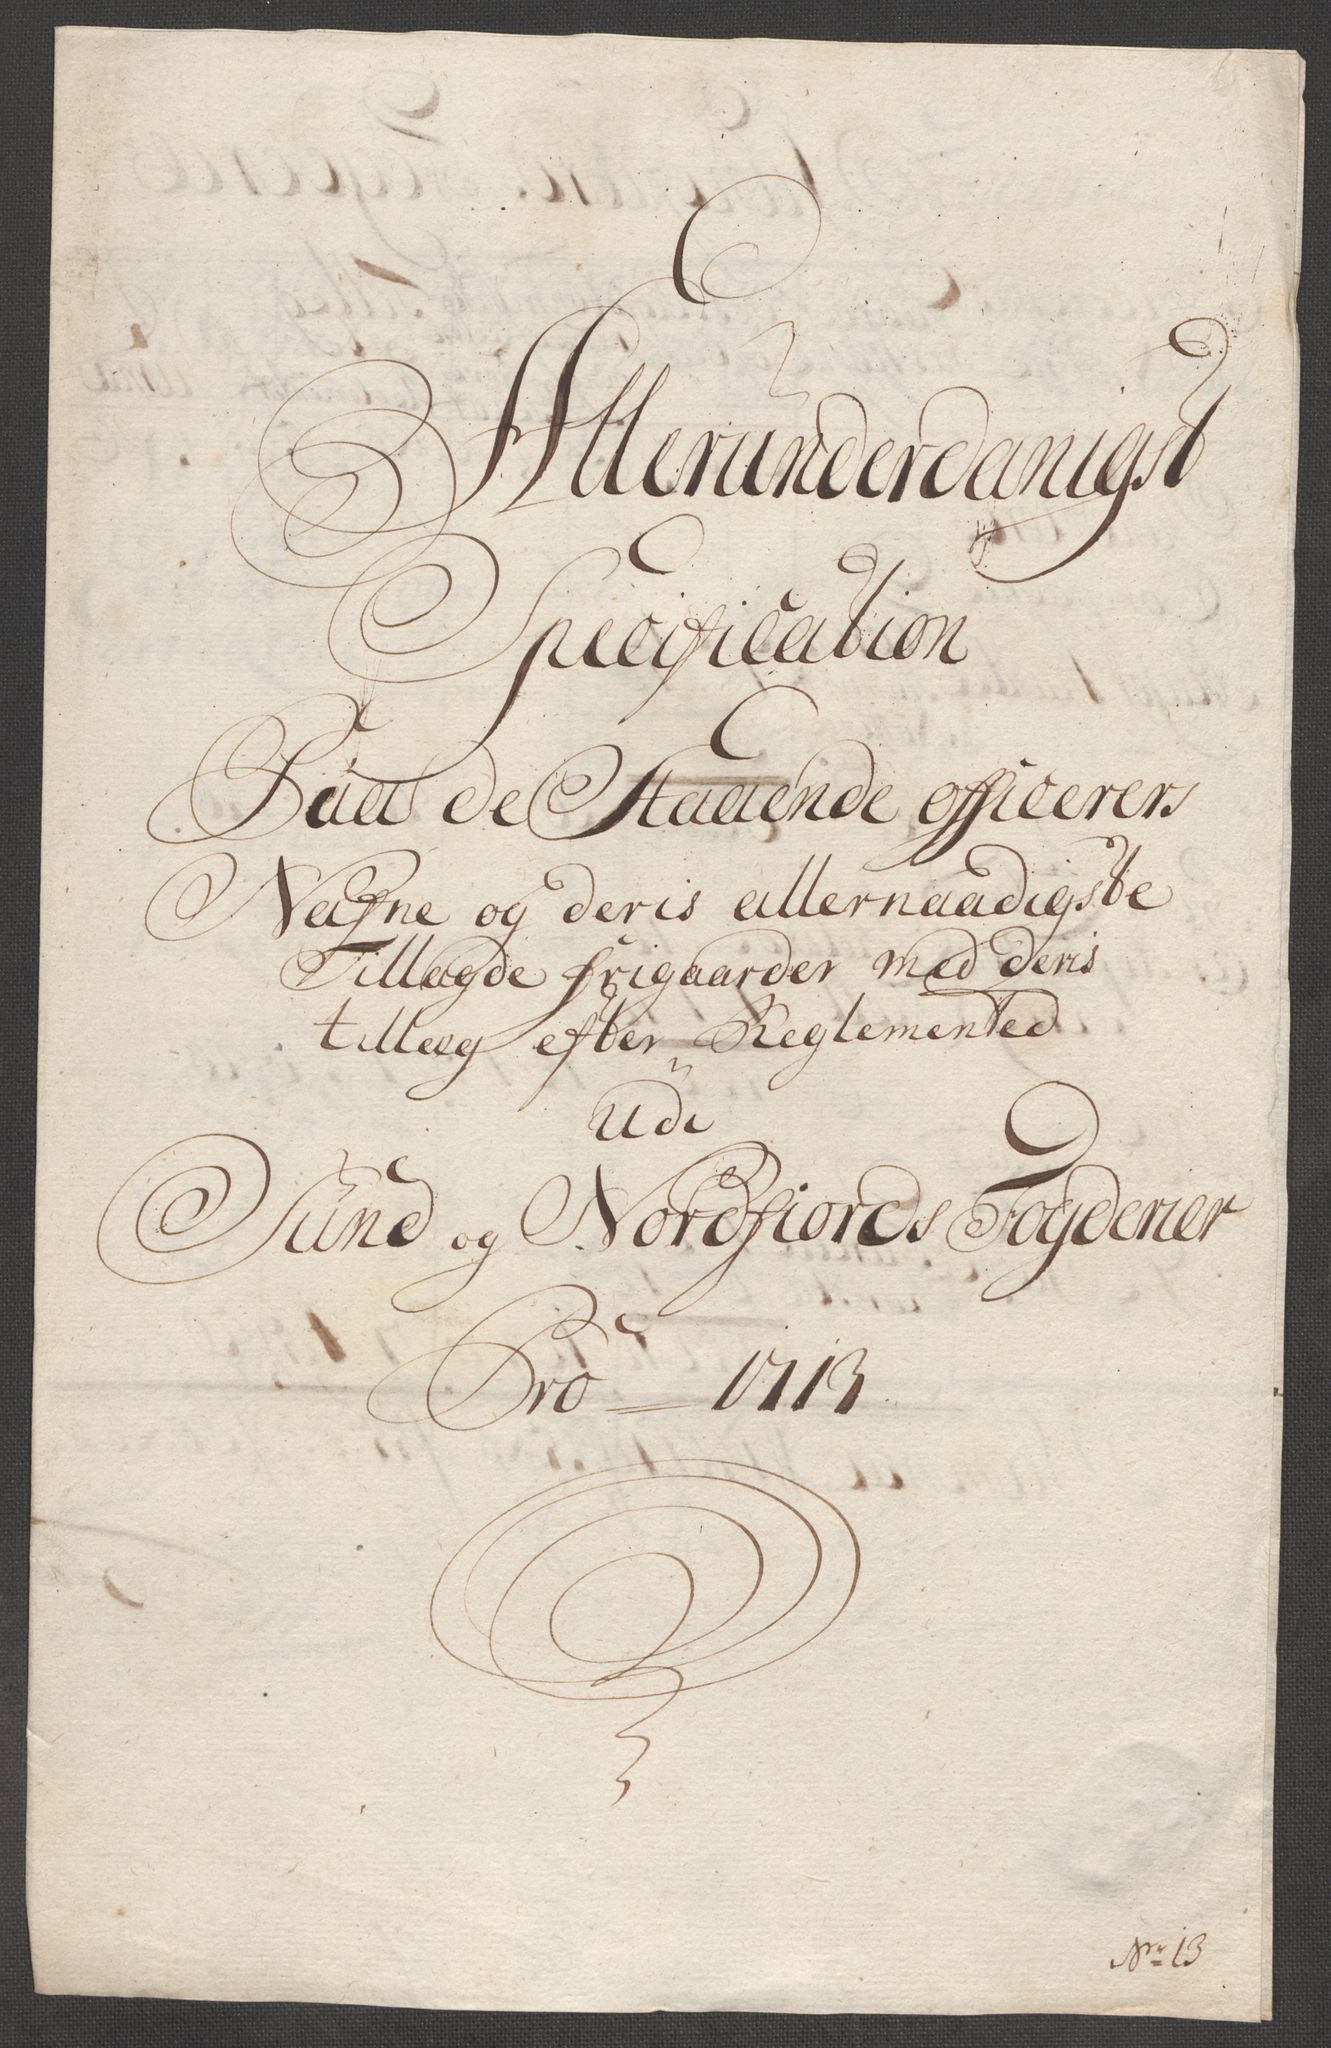 Allerunderdanigst
Specification
Paa de Staaende officerers
Nafne og deris allernaadigste
Tillagde frigaarder med deris
tillæg efter Reglemented
Udi
Sund og Nordfiords Fogderier
Pro 1713
Nr: 13